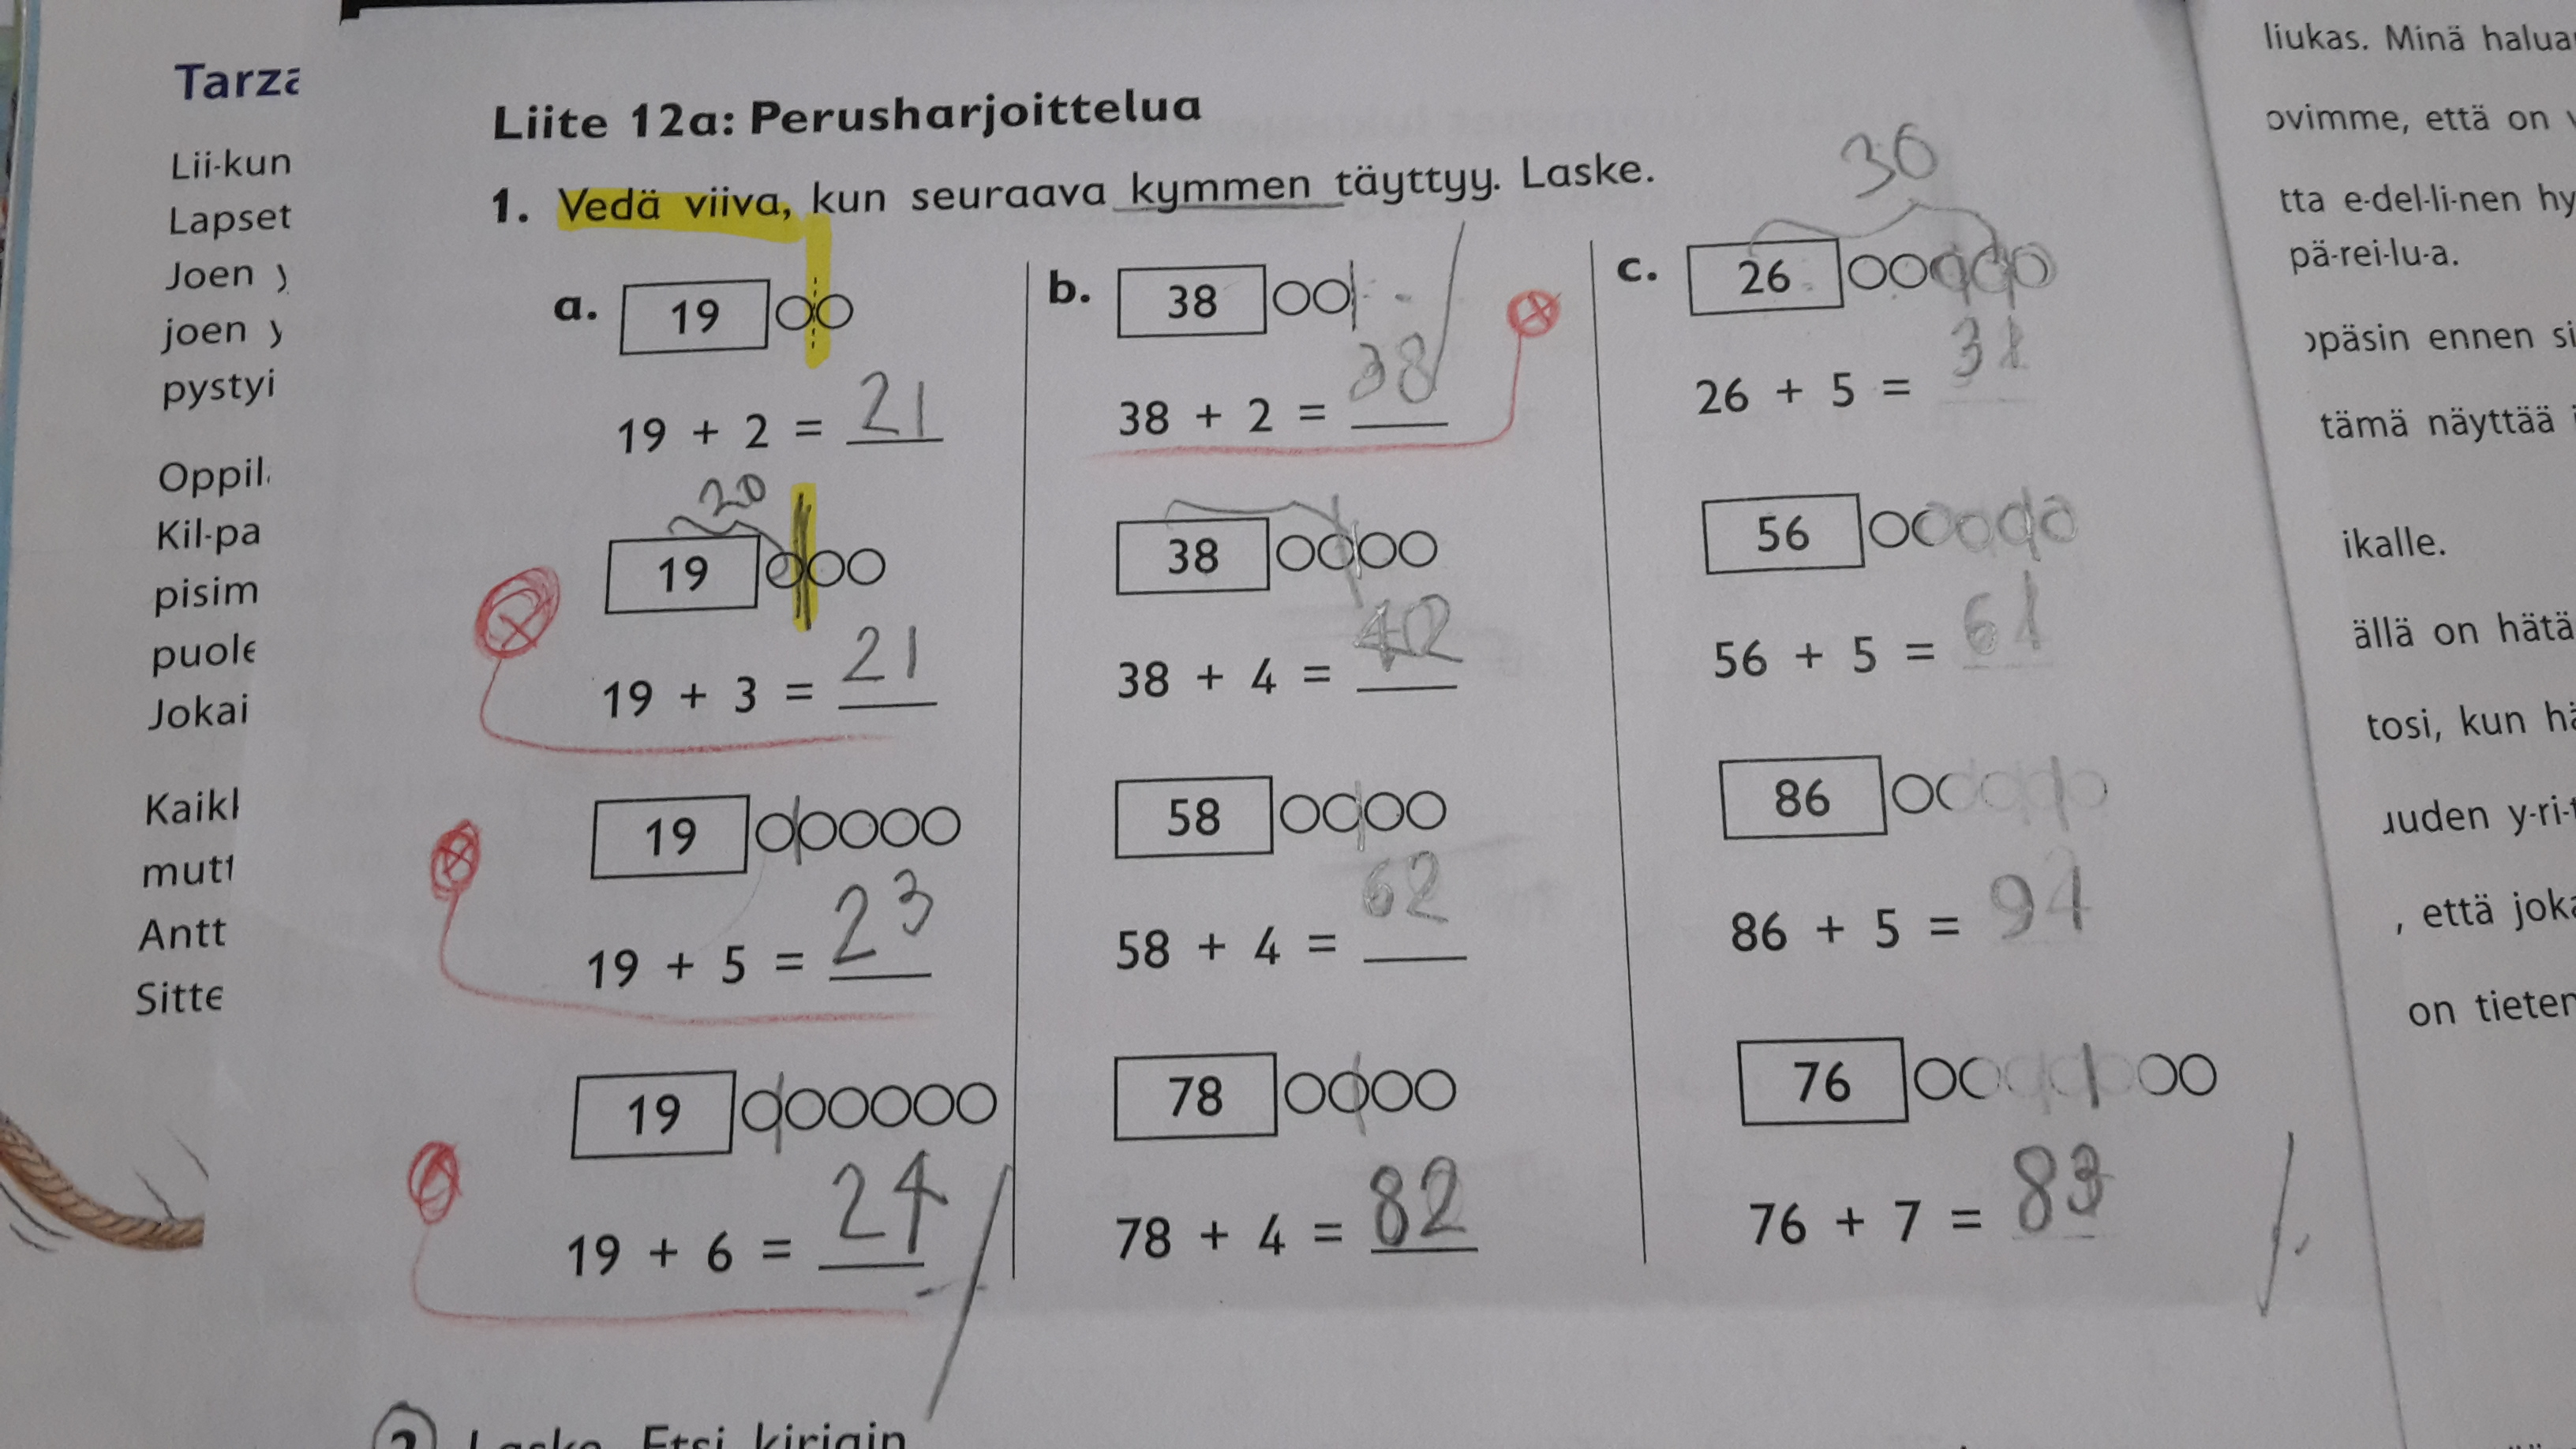 Tarza
Lii-kun
Lapset
Joen y
joen y
pystyi
Oppil
Kil-pa
pisim
puole
Jokai
Kaikk
mutt
Antt
Sitte
Liite 12a: Perusharjoittelua
1. Vedä viiva, kun seuraava kymmen täyttyy. Laske.
a. 19
19 + 2 = 21
20
19
19 + 3 = 21
19
19 + 5 = 23
19
19 + 6 = 24
b. 38
38 + 2 = 38
38
38 + 4 = 42
58
58 + 4 = 62
78
78 + 4 = 82
30
c. 26
26 + 5 = 31
56
56 + 5 = 61
86
86 + 5 = 91
76
76 + 7 = 83
2 Laske. Etsi kirjain
liukas. Minä halua
ovimme, että on
tta e-del-li-nen hy
pä-rei-lu-a.
opäsin ennen si
tämä näyttää
ikalle.
ällä on hätä
tosi, kun hä
uuden y-ri-t
, että joka
on tieten